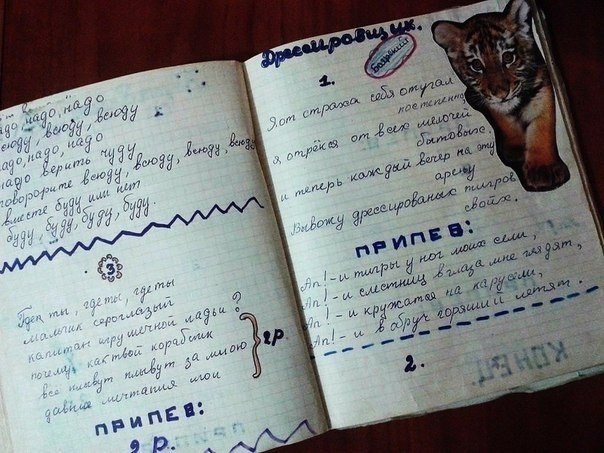 надо, надо
всюду, всюду
надо, надо
надо верить чуду
всюду, всюду, всюду, всюду
вместе буду или нет
буду, буду, буду, буду.
3
Где ты, где ты, где ты
мальчик сероглазый
капитан игрушечной ладьи ?
почему, как твой кораблик
всё плывут плывут за мною
давние мечтания мои
2 р.
ПРИПЕВ:
2 р.
Дрессировщик.
1.
Я от страха себя отучал
постепенно
я отрёкся от всех мелочей
бытовых,
и теперь каждый вечер на эту
арену
Вывожу дрессированых тигров
своих.
ПРИПЕВ:
Ап! - и тигры у ног моих сели,
Ап! - и с лестниц в глаза мне глядят,
Ап! - и кружатся на карусели,
Ап! - и в обруч горящий летят.
2.
КОНЕЦ